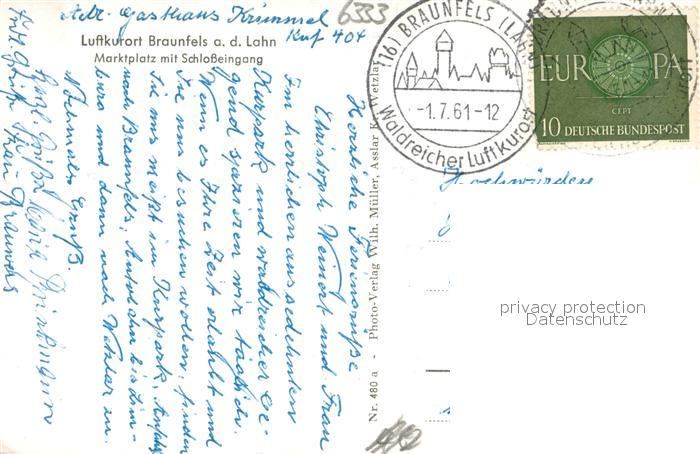 Adr. Gasthaus Krümmel
Ruf 404
6333
Luftkurort Braunfels a. d. Lahn
Marktplatz mit Schloßeingang
(16) BRAUNFELS (LAHN)
-1.7.61-12
Waldreicher Luftkurort
EUROPA
CEPT
10 DEUTSCHE BUNDESPOST
Herzliche Feriengrüße
Christoph Weinert und Frau
Im herrlichen ausgedehnten
Kurpark und waldreicher Ge-
gend spazieren wir täglich.
Wenn es Ihre Zeit erlaubt und
Sie uns besuchen wollen, finden
Sie uns meist im Kurpark.
nach Braunfels, Autobahn bis Lim-
burg und dann nach Wetzlar zu.
Nochmals Gruß.
Nr. 480 a - Photo-Verlag Wilh. Müller, Asslar Kr. Wetzlar
Hochwürden
privacy protection
Datenschutz